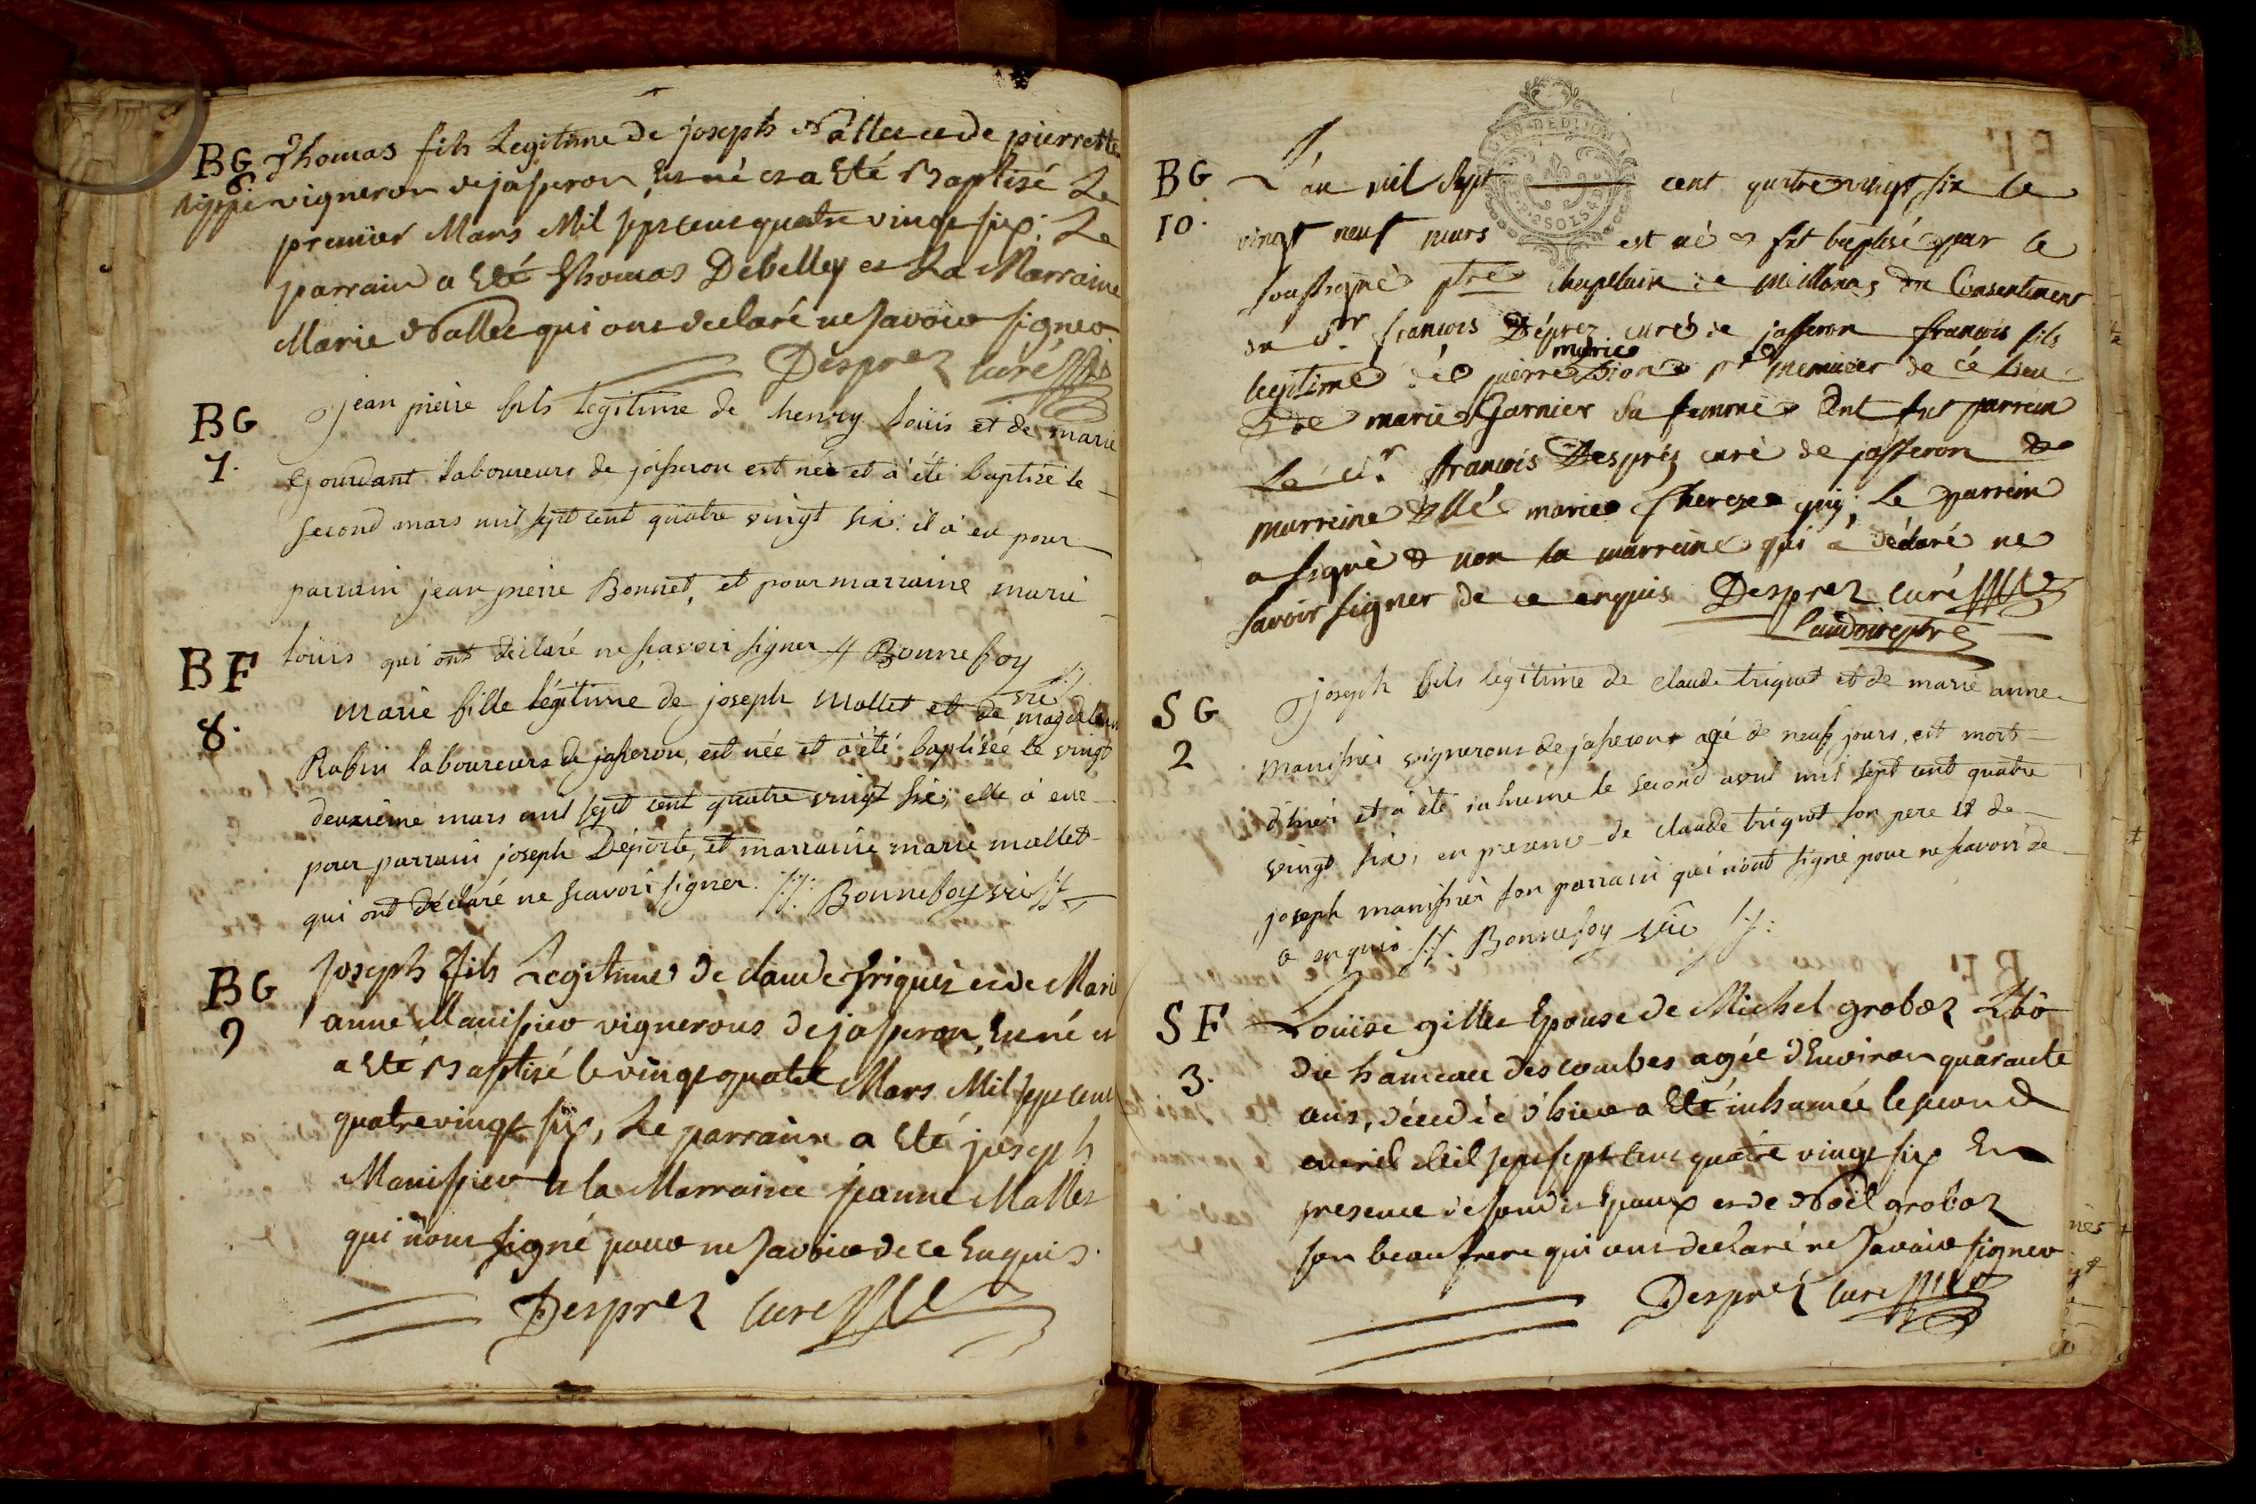 BG Thomas fils Legitime de joseph Nallet et de pierrette
6.
vigneron de jasseron, est né et a Eté Baptisé Le
premier Mars Mil sept cent quatre vingt six. Le
parrain a Eté Thomas Debelley et La Marraine
Marie Nallet qui ont declaré ne savoir signer
Desprez curé
BG jean pierre fils légitime de henry loüis et de marie
7. Gourdant laboureurs de jasseron est née et à été baptisé le
second mars mil sept cent quatre vingt six. il à eu pour
parrain jean pierre Bonnet, et pour marraine marie
loüis qui ont déclaré ne scavoir signer Bonnefoy
vic
BF Marie fille légitime de joseph Mallet et de magdelein
8. Robin laboureurs de jasseron, est née et à été baptisée le vingt
deuxième mars mil sept cent quatre vingt six; elle à eue
pour parrain joseph Déporte, et marraine marie mallet
qui ont déclaré ne scavoir signer. Bonnefoy vic
BG Joseph fils Legitime de claude Triquet et de Marie
9 anne Manissier vignerons de jasseron, est né et
a Eté Baptisé le vingt quatre Mars Mil sept cent
quatre vingt six, Le parrain a Eté joseph
Manissier et la Marraine jeanne Mallet
qui n'ont signé pour ne savoir de ce Enquis.
Desprez curé
BG L'an mil sept cent quatre vingt six le
10. vingt neuf mars est né & fut baptisé par le
soussigné ptre chapelain de Meillonas du Consentement
du Sr. françois Déprez curé de jasseron françois fils
marie
legitime de pierre Dion menuier de cé lieu
& de marie Garnier sa femme Ont fut parrein
Le Sr. françois Desprez curé de jasseron &
marreine Dlle marie Therese puy; Le parrein
a signé & non la marreine qui a déclaré ne
savoir signer de ce enquis Desprez curé
SG joseph fils légitime de claude triquet et de marie anne
2 manissier vignerons de jasseron agé de neuf jours, est mort
d'hier et à été inhumé le second avril mil sept cent quatre
vingt six; en presence de claude triquet son pere et de
joseph manissier son parrain qui n'ont signé pour ne scavoir de
ce enquis. Bonnefoy vic
SF Loüise gillet Epouse de Michel grobaz Lbō
3. du hameau des combes agée d'Environ quarante
ans, décédée d'hier a Eté inhumée le second
avril Mil sept sept cent quatre vingt six En
presence de son dit Epoux et de Noël grobaz
son beau frere qui ont declaré ne savoir signer
Desprez curé